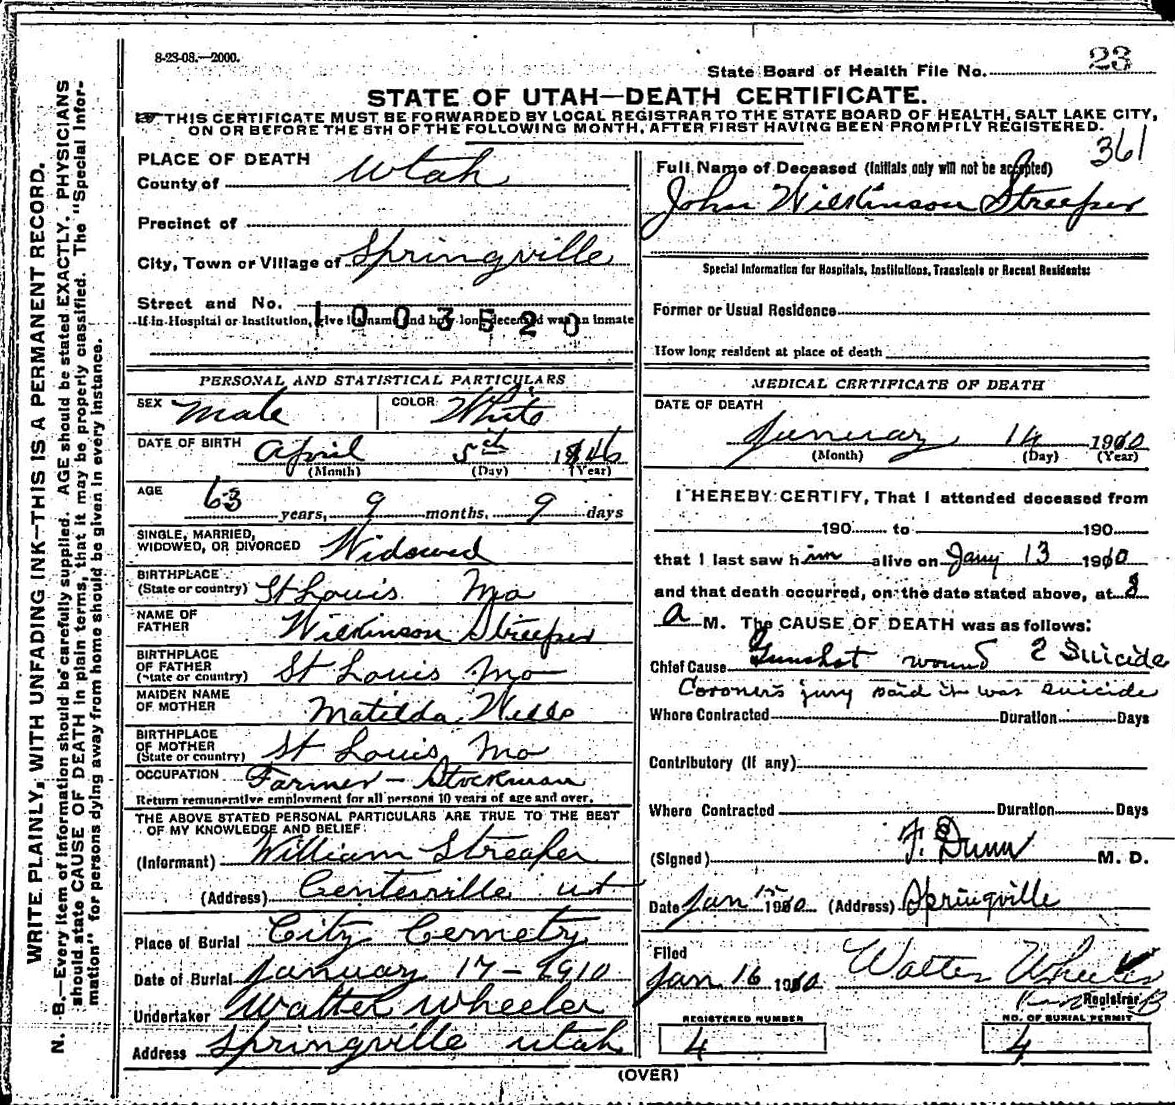 8-23-08.—2000.
State Board of Health File No. 23
STATE OF UTAH—DEATH CERTIFICATE.
THIS CERTIFICATE MUST BE FORWARDED BY LOCAL REGISTRAR TO THE STATE BOARD OF HEALTH, SALT LAKE CITY,
ON OR BEFORE THE 5TH OF THE FOLLOWING MONTH, AFTER FIRST HAVING BEEN PROMPTLY REGISTERED.
361
WRITE PLAINLY, WITH UNFADING INK—THIS IS A PERMANENT RECORD.
N. B.—Every item of information should be carefully supplied. AGE should be stated EXACTLY. PHYSICIANS
should state CAUSE OF DEATH in plain terms, that it may be properly classified. The "Special Infor-
mation" for persons dying away from home should be given in every instance.
PLACE OF DEATH
County of Utah
Precinct of
City, Town or Village of Springville
Street and No.
1003520
If in Hospital or Institution, give its name and how long deceased was an inmate
PERSONAL AND STATISTICAL PARTICULARS
SEX Male COLOR White
DATE OF BIRTH April 5th 1846
(Month) (Day) (Year)
AGE 63 years, 9 months, 9 days
SINGLE, MARRIED,
WIDOWED, OR DIVORCED Widowed
BIRTHPLACE
(State or country) St Louis Mo
NAME OF
FATHER Wilkinson Streeper
BIRTHPLACE
OF FATHER
(State or country) St Louis Mo
MAIDEN NAME
OF MOTHER Matilda Wells
BIRTHPLACE
OF MOTHER
(State or country) St Louis, Mo
OCCUPATION Farmer - Stockman
Return remunerative employment for all persons 10 years of age and over.
THE ABOVE STATED PERSONAL PARTICULARS ARE TRUE TO THE BEST
OF MY KNOWLEDGE AND BELIEF
(Informant) William Streeper
(Address) Centerville ut
Place of Burial City Cemetry
Date of Burial January 17 - 1910
Undertaker Walter Wheeler
Address Springville Utah
Full Name of Deceased (Initials only will not be accepted)
John Wilkinson Streeper
Special Information for Hospitals, Institutions, Transients or Recent Residents:
Former or Usual Residence
How long resident at place of death
MEDICAL CERTIFICATE OF DEATH
DATE OF DEATH
January 14 1910
(Month) (Day) (Year)
I HEREBY CERTIFY, That I attended deceased from
190 to 190
that I last saw him alive on Jany 13 1910
and that death occurred, on the date stated above, at 8
a M. The CAUSE OF DEATH was as follows:
Chief Cause Gunshot wound ? Suicide
Coroner's jury said it was suicide
Where Contracted Duration Days
Contributory (If any)
Where Contracted Duration Days
(Signed) F. Dunn M. D.
Date Jan 15 1910 (Address) Springville
Filed
Jan 16 1910 Walter Wheeler
Registrar
REGISTERED NUMBER
4
NO. OF BURIAL PERMIT
4
(OVER)